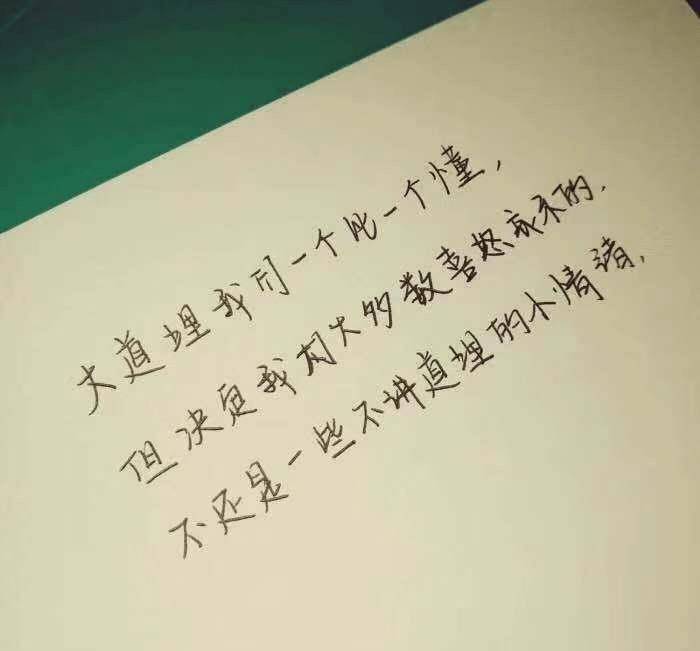 大道理我们一个比一个懂，
但决定我们大多数喜怒哀乐的，
不还是一些不讲道理的小情绪，